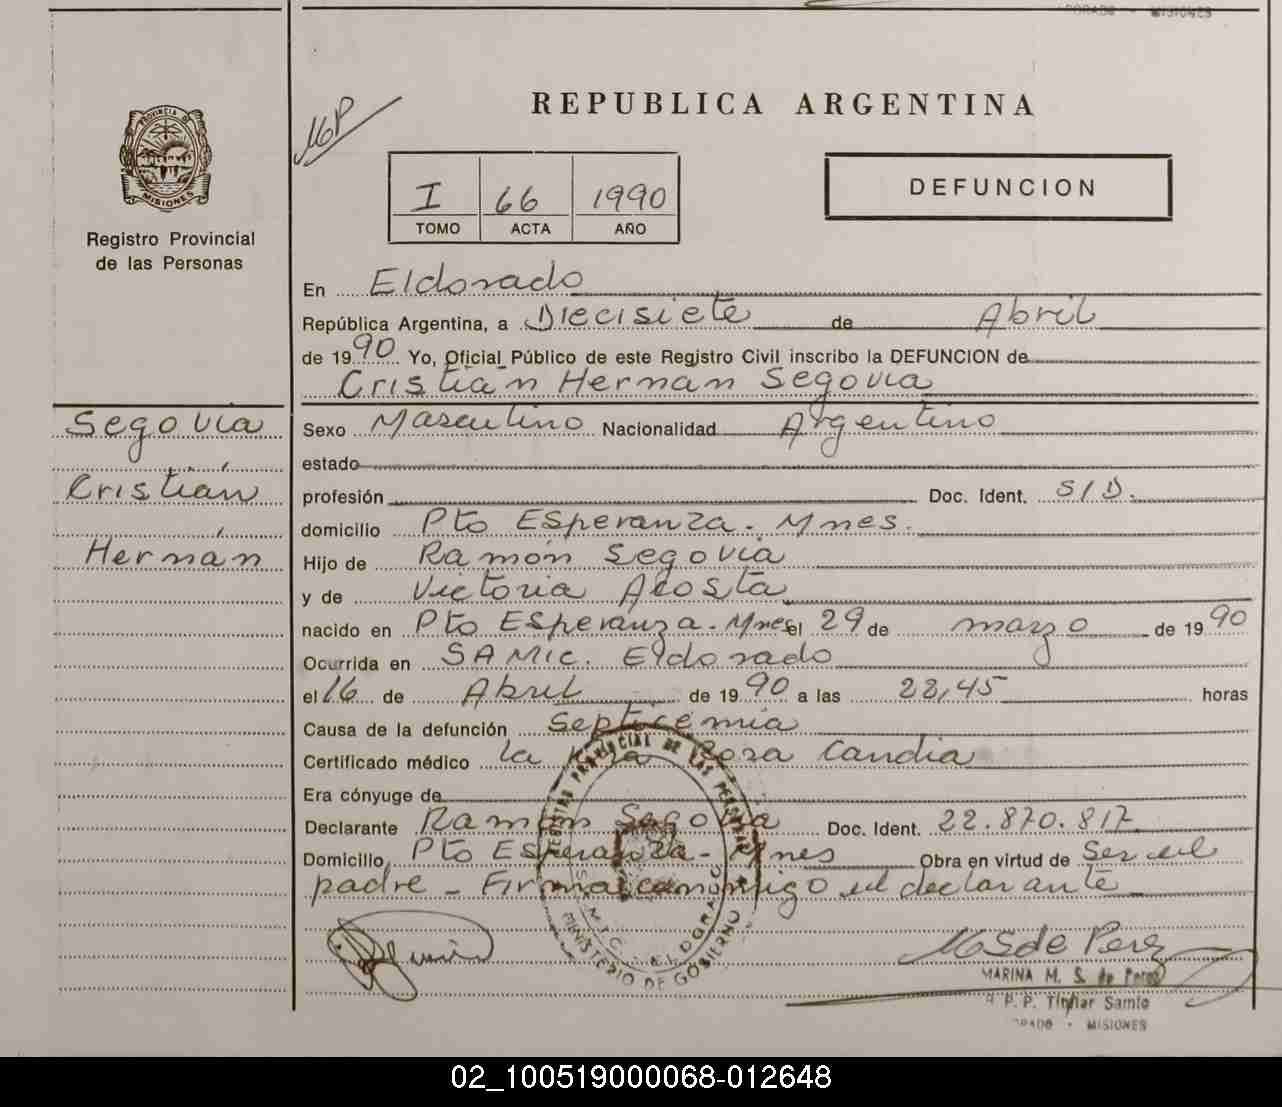 REPUBLICA ARGENTINA
PROVINCIA DE
MISIONES
Registro Provincial
de las Personas
I 66 1990
TOMO ACTA AÑO
DEFUNCION
En Eldorado
República Argentina, a Diecisiete de Abril
de 1990 Yo, Oficial Público de este Registro Civil inscribo la DEFUNCION de
Cristian Hernan Segovia
Segovia
Cristián
Hernán
Sexo Masculino Nacionalidad Argentino
estado
profesión Doc. Ident. S/D.
domicilio Pto Esperanza. Mnes.
Hijo de Ramón Segovia
y de Victoria Acosta
nacido en Pto Esperanza. Mnes el 29 de marzo de 1990
Ocurrida en SAMIC. Eldorado
el 16 de Abril de 1990 a las 22,45 horas
Causa de la defunción Septicemia
Certificado médico La Rosa Candia
Era cónyuge de
Declarante Ramón Segovia Doc. Ident. 22.870.817
Domicilio Pto Esperanza - Mnes Obra en virtud de Ser el
padre - Firma conmigo el declarante
REGISTRO PROVINCIAL DE LAS PERSONAS
S.A.M.I.C. ELDORADO
MINISTERIO DE GOBIERNO
MSde Perez
MARINA M. S. de Perez
MISIONES
02_100519000068-012648